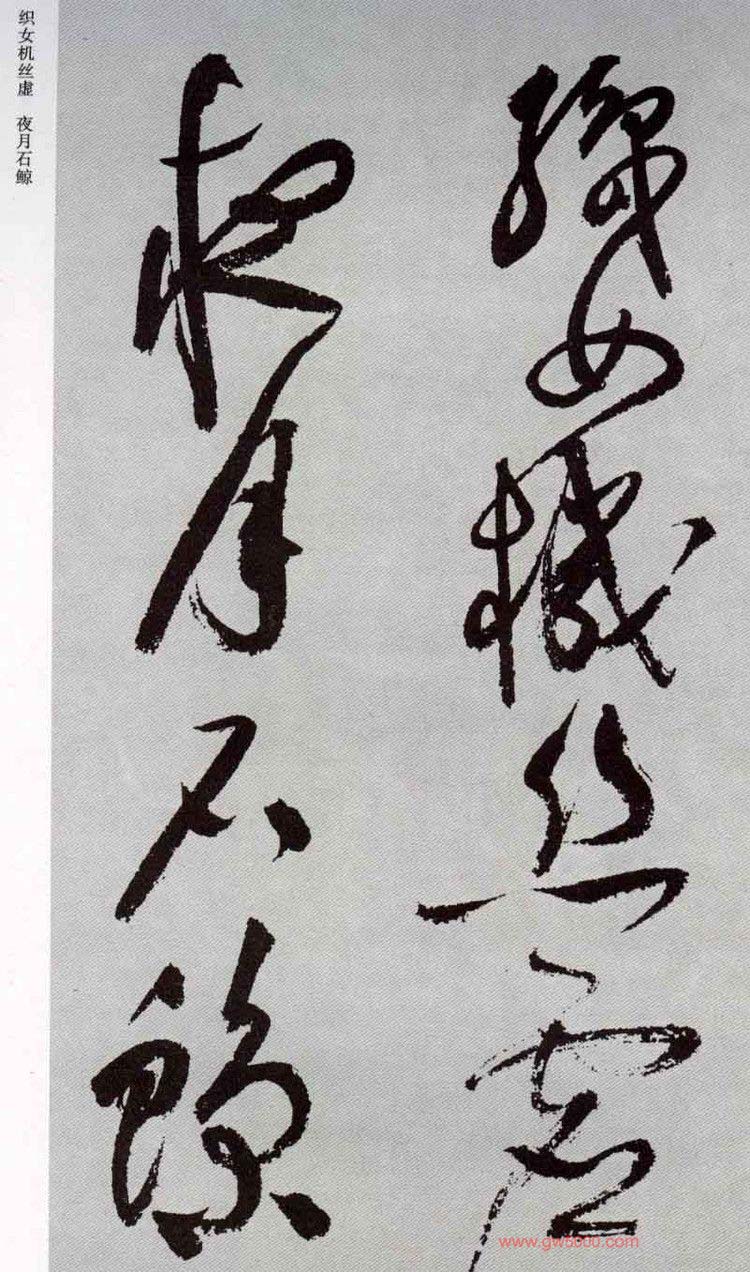 織女機絲虛
夜月石鯨
织女机丝虚 夜月石鲸
www.gw5000.com